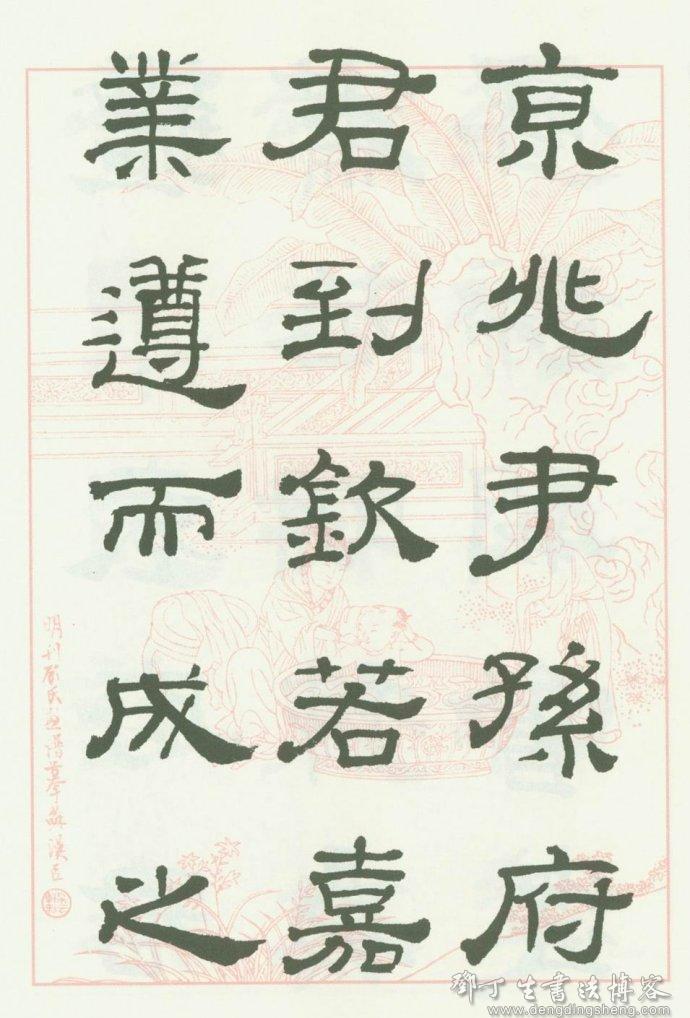 京兆尹孫府
君到欽若嘉
業遵而成之
鄧丁生書法博客
www.dengdingsheng.com